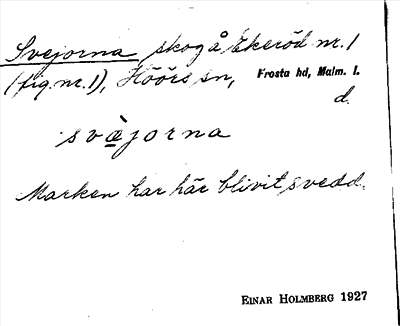 Svejorna skog å Ekeröd nr. 1
(fig. nr. 1), Höörs sn, Frosta hd, Malm. l.
d.
svæ̀jorna
Marken har här blivit svedd.
EINAR HOLMBERG 1927